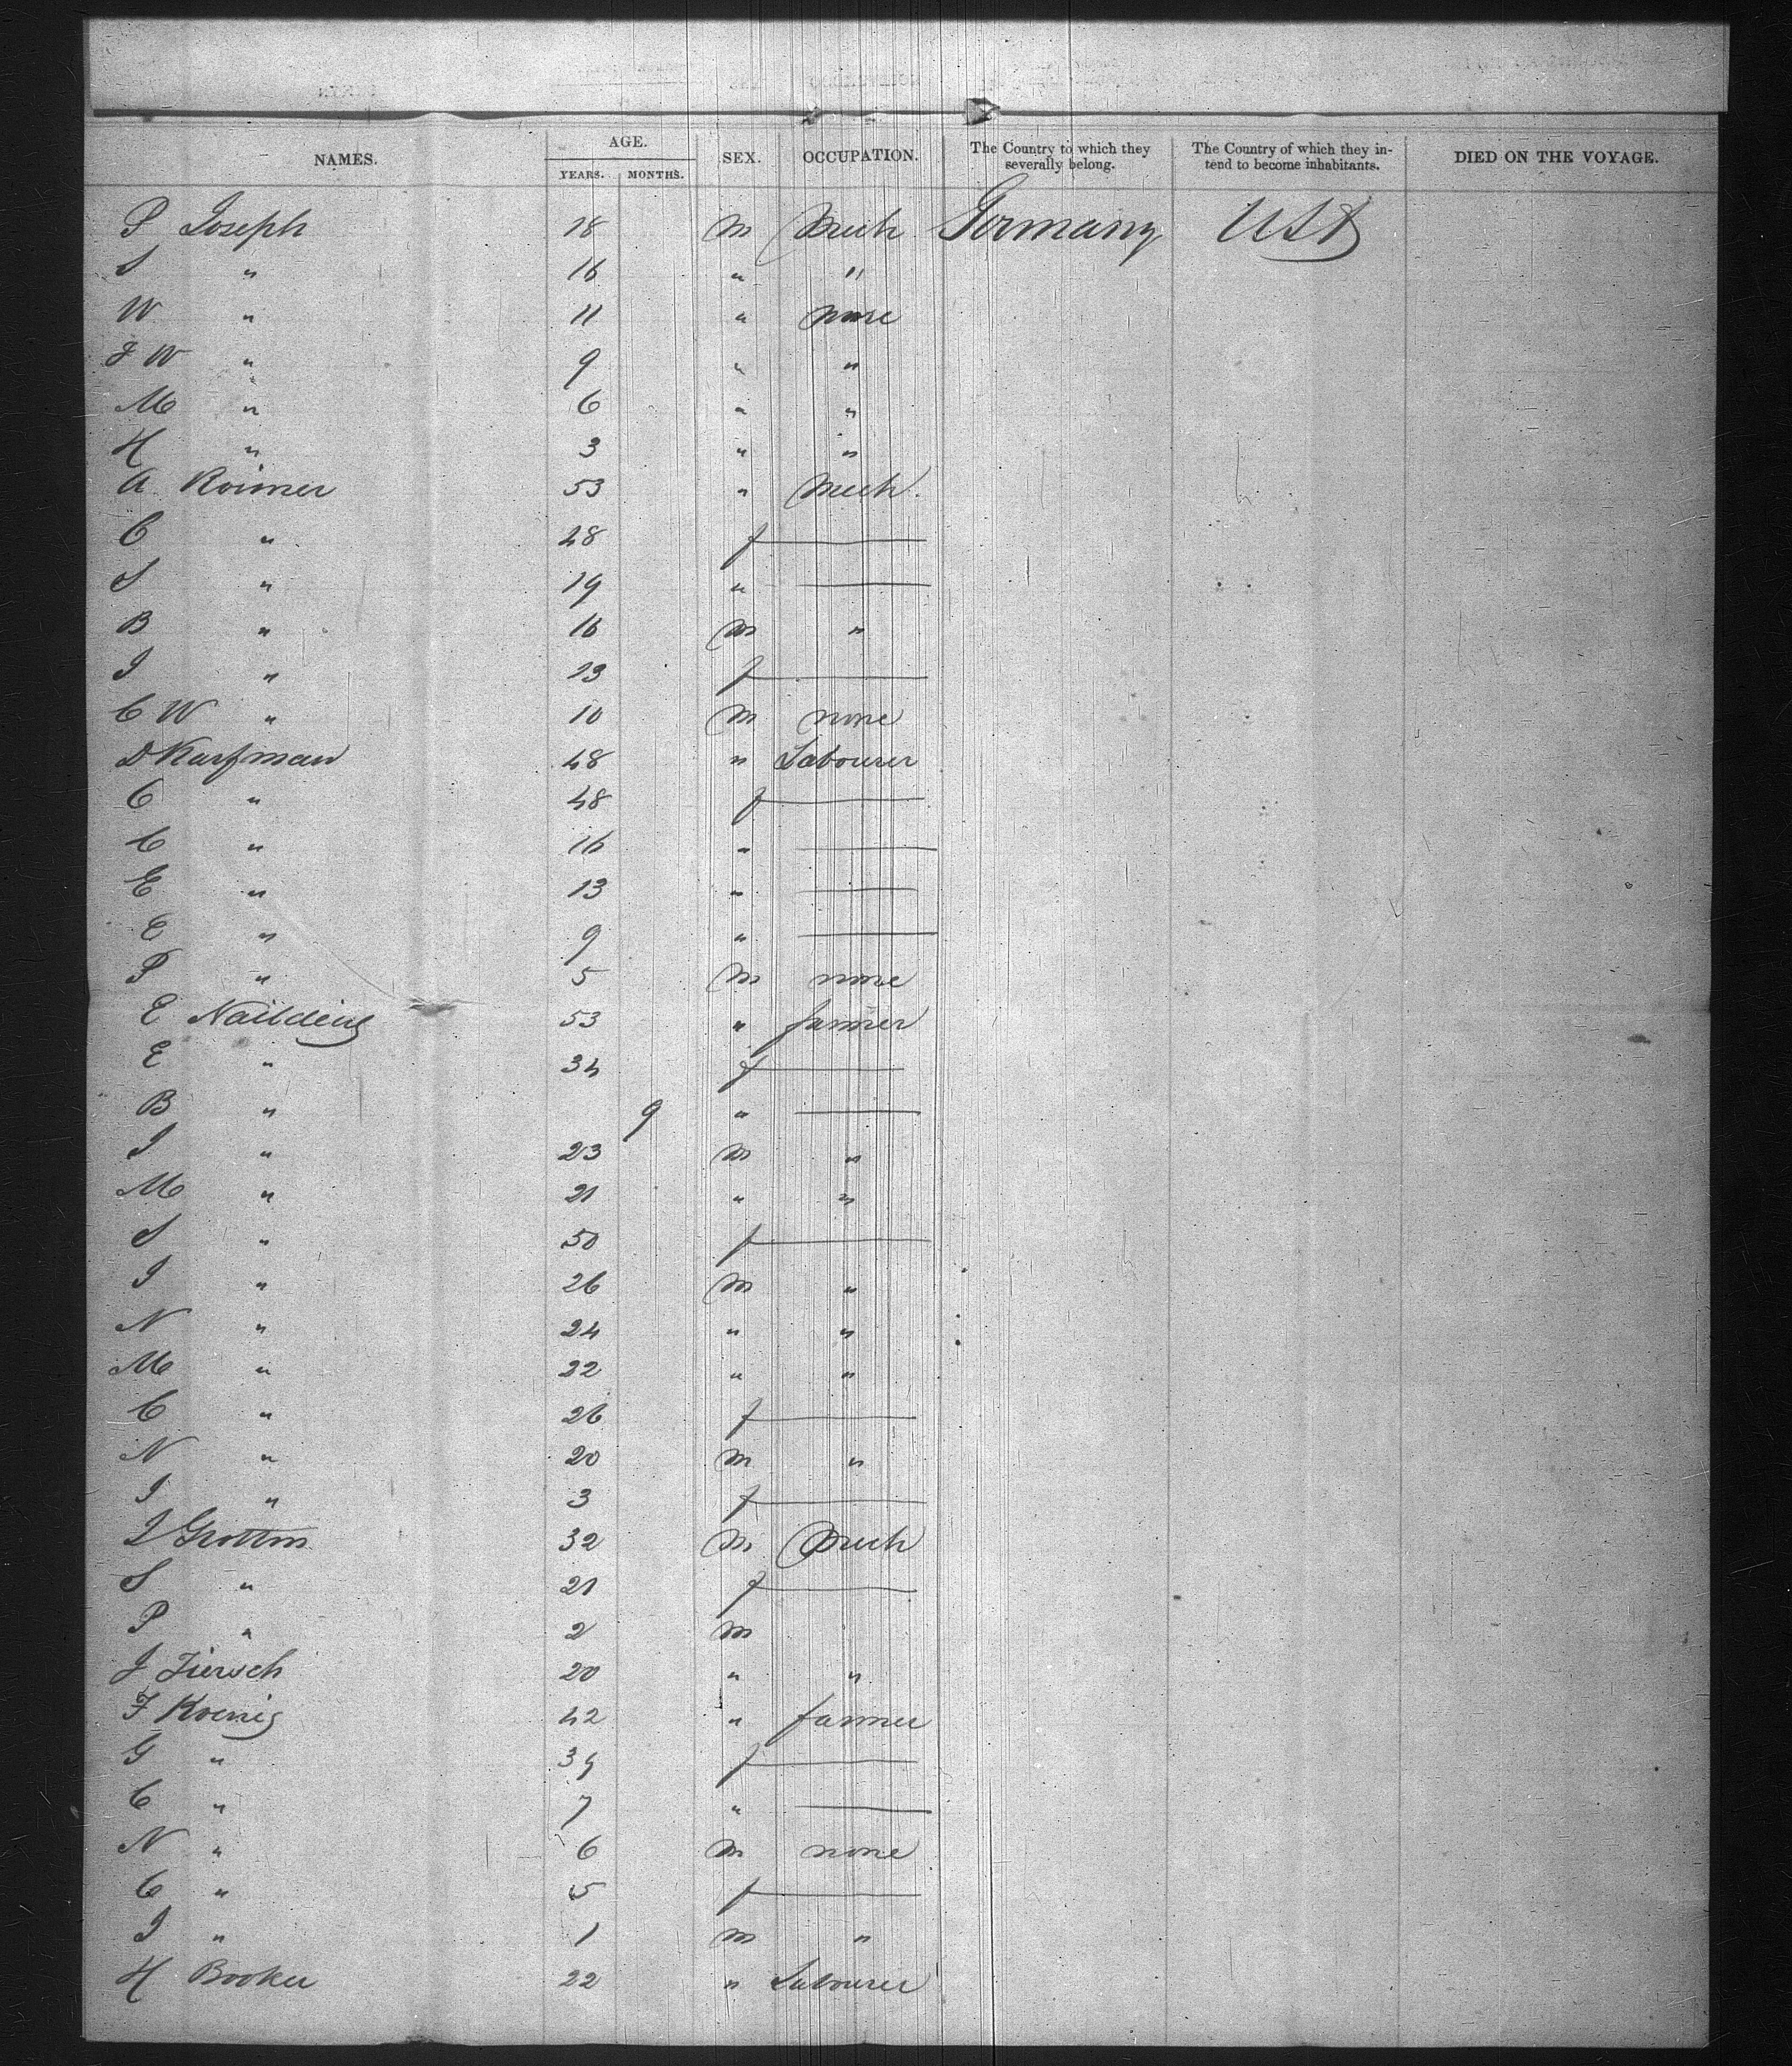 NAMES. AGE. YEARS. MONTHS. SEX. OCCUPATION. The Country to which they severally belong. The Country of which they intend to become inhabitants. DIED ON THE VOYAGE.
P Joseph 18 m Mech Germany USA
S " 16 " "
W " 11 " none
F W " 9 " "
M " 6 " "
H " 3 " "
A Roimer 53 " Mech.
C " 48 f —
S " 19 " —
B " 16 m "
I " 13 f —
C W " 10 m none
D Kaufman 48 " Labourer
C " 48 f —
C " 16 " —
E " 13 " —
E " 9 " —
P " 5 m none
E 53 " farmer
E " 34 f —
B " 9 " —
I " 23 m "
M " 21 " "
S " 50 f —
I " 26 m "
N " 24 " "
M " 22 " "
C " 26 f —
N " 20 m "
I " 3 f —
I 32 m Mech
S " 21 f —
P " 2 m
J Fiersch 20 " "
F Koenig 42 " farmer
G " 39 f —
C " 7 " —
N " 6 m none
C " 5 f —
I " 1 m "
H Booker 22 " Labourer